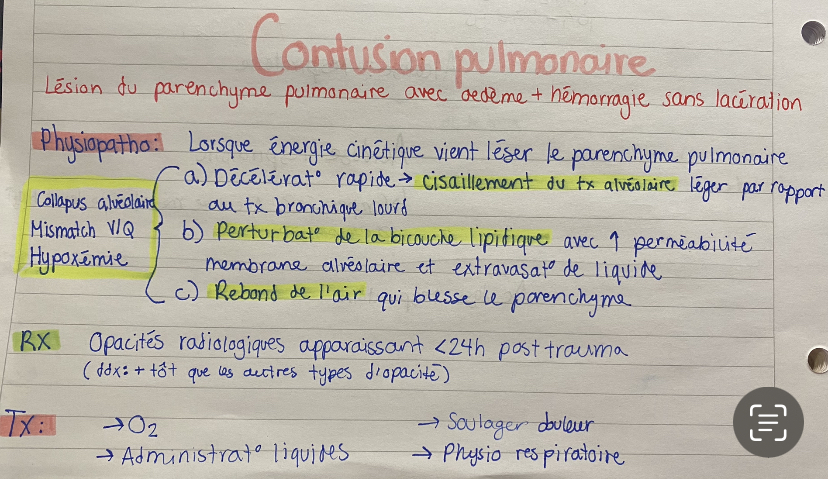 Contusion pulmonaire
Lésion du parenchyme pulmonaire avec oedème + hémorragie sans lacération
Physiopatho: Lorsque énergie cinétique vient léser le parenchyme pulmonaire
a) Décélérat° rapide → cisaillement du tx alvéolaire léger par rapport
au tx bronchique lourd
b) Perturbat° de la bicouche lipidique avec ↑ perméabilité
membrane alvéolaire et extravasat° de liquide
c) Rebond de l'air qui blesse le parenchyme
Collapus alvéolaire
Mismatch V/Q
Hypoxémie
RX Opacités radiologiques apparaissant <24h post trauma
(ddx: + tôt que les autres types d'opacité)
Tx: → O2 → Soulager douleur
→ Administrat° liquides → Physio respiratoire